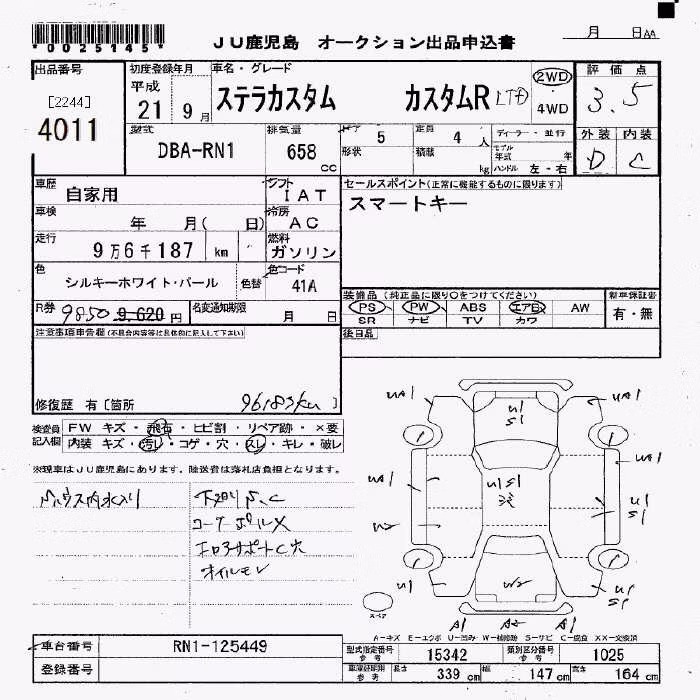 *0025145*
JU鹿児島 オークション出品申込書
月 日AA
出品番号 初度登録年月 車名・グレード 評価点
[2244]
4011
平成
21 9月
ステラカスタム カスタムR LTD
2WD
4WD
3.5
型式 排気量 ドア 定員 ディーラー・並行 外装 内装
DBA-RN1 658 cc
5 4人
形状 積載 kg
モデル年式 年
ハンドル 左・右
D C
車歴 自家用
シフト IAT
セールスポイント(正常に機能するものに限ります)
スマートキー
車検 年 月( 日)
冷房 AC
走行 9万6千187 km
燃料 ガソリン
色 シルキーホワイト・パール 色替
色コード 41A
装備品(純正品に限り○をつけてください) 新車保証書
PS PW ABS エアB AW
SR ナビ TV カワ
有・無
R券 9850 9,620円 名変通知期限 月 日
注意事項申告欄(不具合内容等は具体的に記入して下さい)
後日品
修復歴 有[箇所 96183km]
検査員記入欄
FW キズ・飛石・ヒビ割・リペア跡・×要
内装 キズ・汚レ・コゲ・穴・スレ・キレ・破レ
※現車はJU鹿児島にあります。陸送費は落札店負担となります。
コーナーポール×
エロアサポートC穴
オイルモレ
UA1 U1 S1 UA1
UA1 U1S1 UA1
U1
S1
U2
U1 U1
S1
A1 A2 A1
スペア
A-キズ E-エクボ U-凹み W-補修跡 S-サビ C-腐食 XX-交換済
車台番号 RN1-125449
型式指定番号 参考 15342 類別区分番号 参考 1025
登録番号
車庫証明用 参考 長さ 339 cm 幅 147 cm 高さ 164 cm